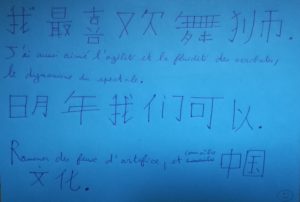 我最喜欢舞狮.
J'ai aussi aimé l'agilité et la fluidité des acrobates,
le dynamisme du spectacle.
明年我们可以.
Ramener des feux d'artifice, et connaître 中国
文化.